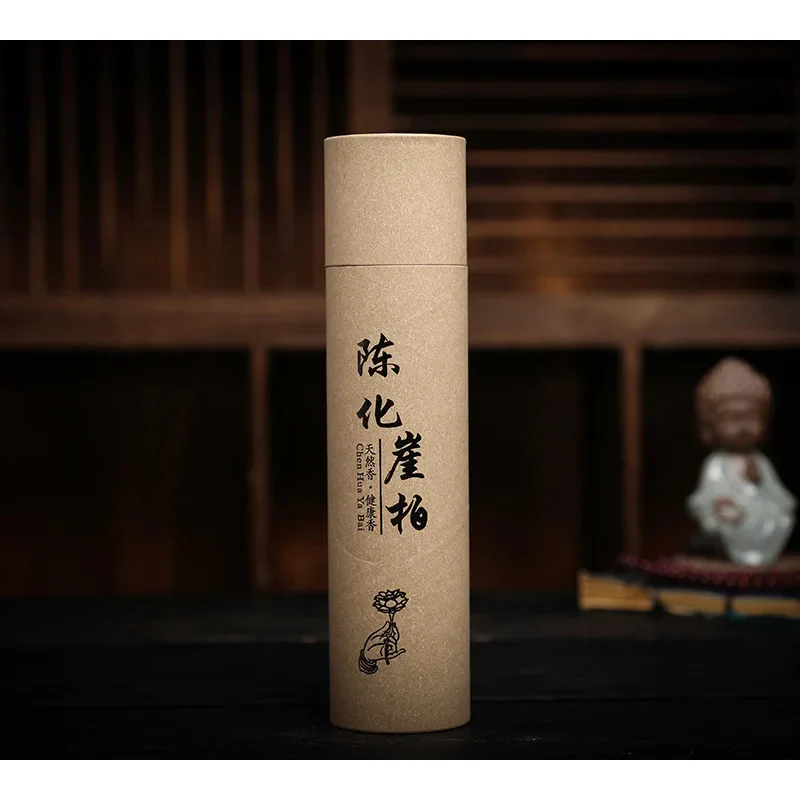 陈化
崖柏
天然香·健康香
Chen Hua Ya Bai